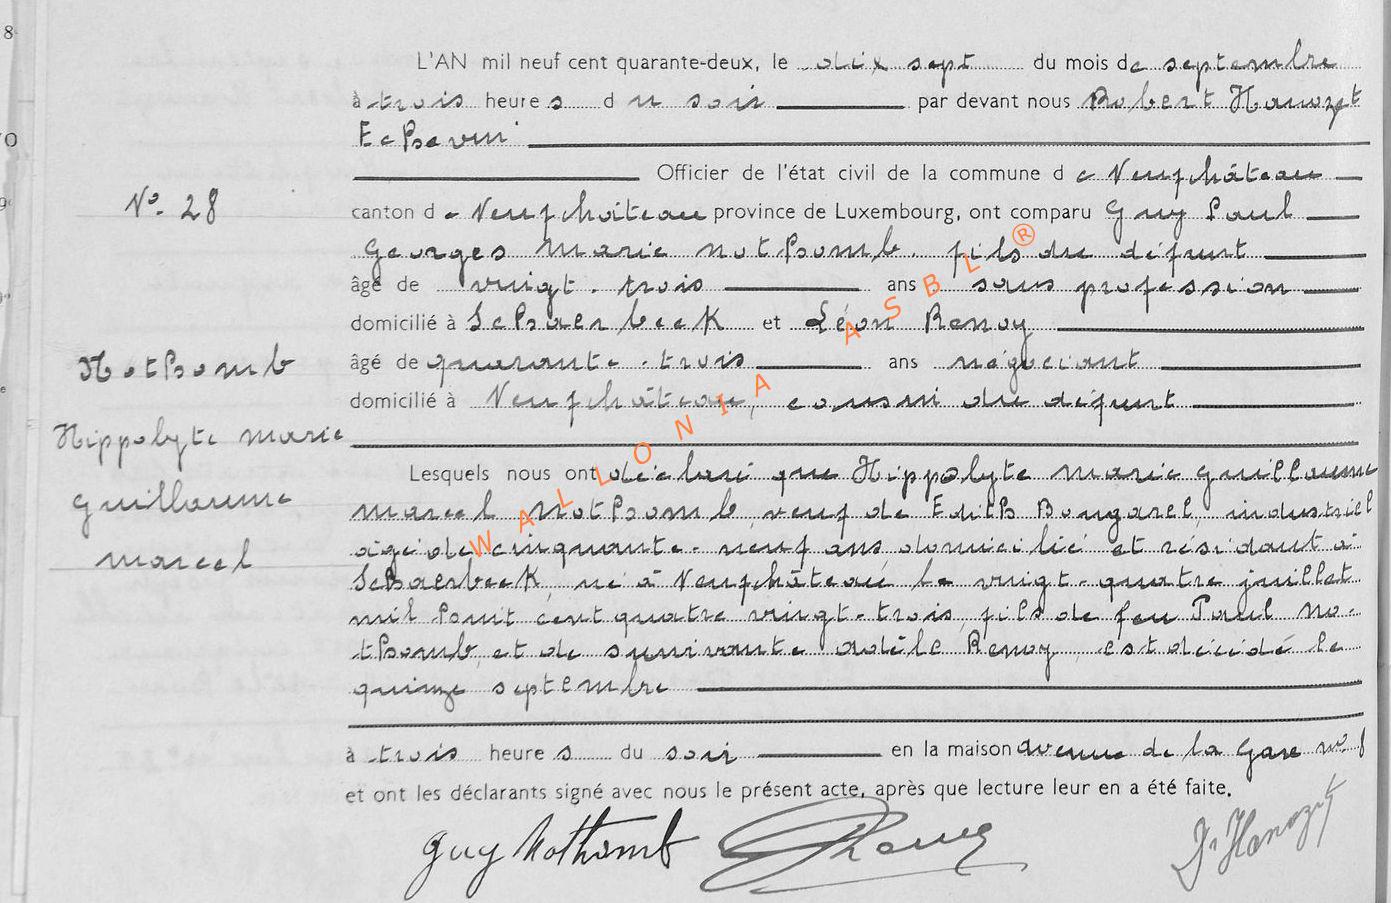 L'AN mil neuf cent quarante-deux, le dix sept du mois de septembre
à trois heures du soir par devant nous Robert Hanozet
Echevin
Officier de l'état civil de la commune de Neufchâteau
N° 28
canton de Neufchâteau province de Luxembourg, ont comparu Guy Paul
Georges Marie Nothomb. fils du défunt
âgé de vingt-trois ans sans profession
domicilié à Schaerbeek et Léon Renoy
Nothomb
âgé de quarante-trois ans négociant
domicilié à Neufchâteau, cousin du défunt
Hippolyte Marie
Guillaume
Marcel
Lesquels nous ont déclaré que Hippolyte Marie Guillaume
Marcel Nothomb, veuf de Edith Bongarel, industriel
âgé de cinquante-neuf ans domicilié et résidant à
Schaerbeek, né à Neufchâteau le vingt-quatre juillet
mil huit cent quatre vingt-trois, fils de feu Paul No-
thomb, et de survivante Adèle Renoy, est décédé le
quinze septembre
à trois heures du soir en la maison avenue de la Gare n° 8
et ont les déclarants signé avec nous le présent acte, après que lecture leur en a été faite.
Guy Nothomb Renoy Hanozet
WALLONIA ASBL ®